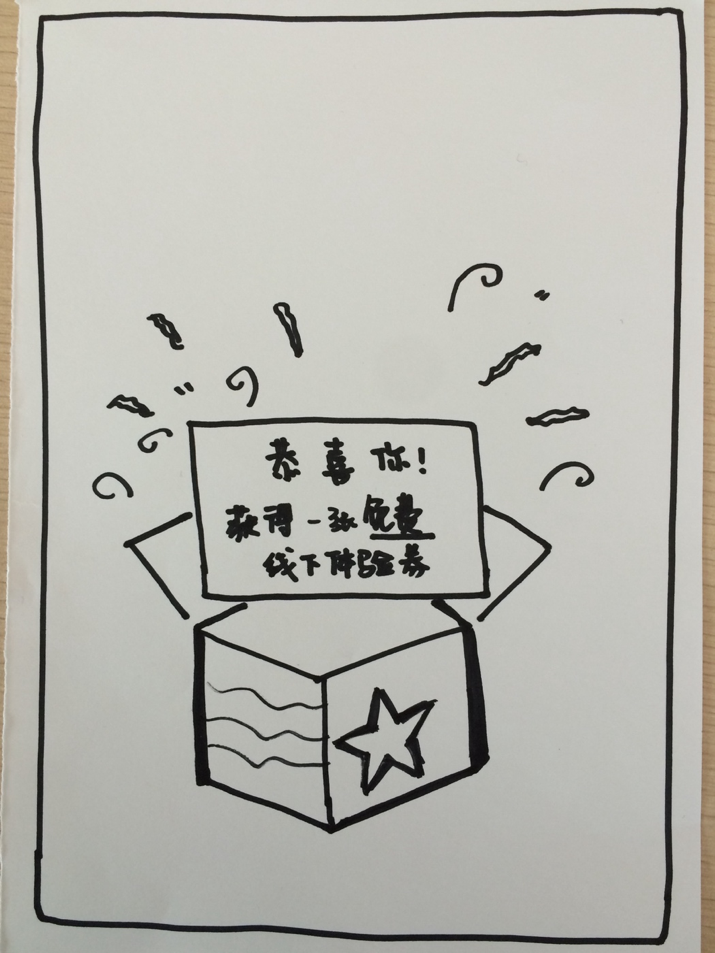 恭喜你!
获得一张免费
线下体验券